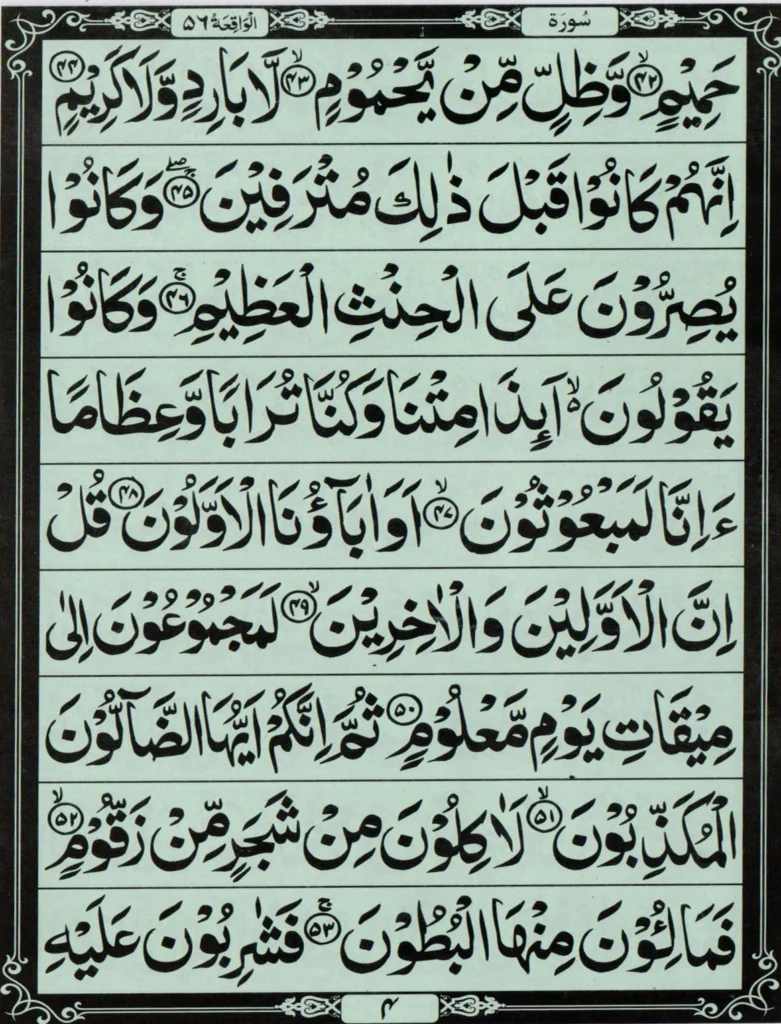 سُورَة الْوَاقِعَة ۵۶
حَمِيْمٍ ۙ۴۲ وَّظِلٍّ مِّنْ يَّحْمُوْمٍ ۙ۴۳ لَّا بَارِدٍ وَّلَا كَرِيْمٍ ۴۴
اِنَّهُمْ كَانُوْا قَبْلَ ذٰلِكَ مُتْرَفِيْنَ ۚۖ۴۵ وَكَانُوْا
يُصِرُّوْنَ عَلَى الْحِنْثِ الْعَظِيْمِ ۚ۴۶ وَكَانُوْا
يَقُوْلُوْنَ ۙ۵ اَىِٕذَا مِتْنَا وَكُنَّا تُرَابًا وَّعِظَامًا
ءَاِنَّا لَمَبْعُوْثُوْنَ ۙ۴۷ اَوَاٰبَآؤُنَا الْاَوَّلُوْنَ ۴۸ قُلْ
اِنَّ الْاَوَّلِيْنَ وَالْاٰخِرِيْنَ ۙ۴۹ لَمَجْمُوْعُوْنَ اِلٰى
مِيْقَاتِ يَوْمٍ مَّعْلُوْمٍ ۵۰ ثُمَّ اِنَّكُمْ اَيُّهَا الضَّآلُّوْنَ
الْمُكَذِّبُوْنَ ۙ۵۱ لَاٰكِلُوْنَ مِنْ شَجَرٍ مِّنْ زَقُّوْمٍ ۙ۵۲
فَمَالِـُٔوْنَ مِنْهَا الْبُطُوْنَ ۚ۵۳ فَشٰرِبُوْنَ عَلَيْهِ
۴